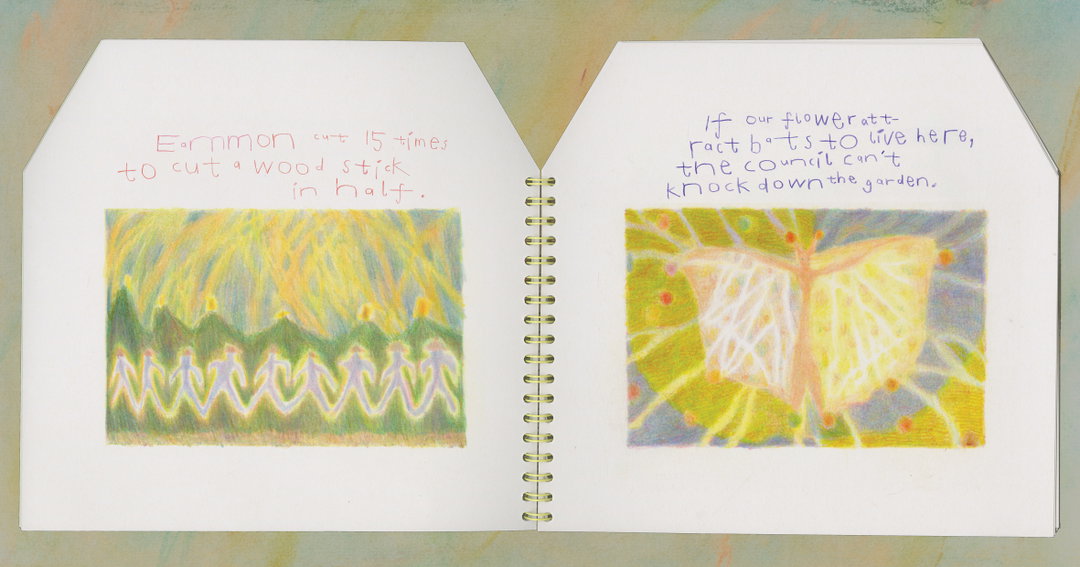 Eammon cut 15 times
to cut a wood stick
in half.
If our floweratt-
ract bats to live here,
the council can't
knock down the garden.